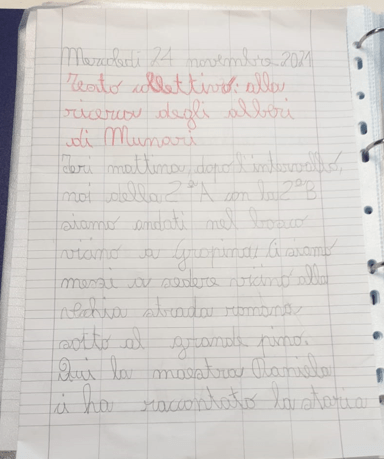 Mercoledì 24 novembre 2021
Testo collettivo: alla
ricerca degli alberi
di Munari
Ieri mattina, dopo l'intervallo,
noi della 2ªA con la 2ªB
siamo andati nel bosco
vicino a Gropina. Ci siamo
messi a sedere vicino alla
vecchia strada romana,
sotto al grande pino.
Qui la maestra Daniela
ci ha raccontato la storia